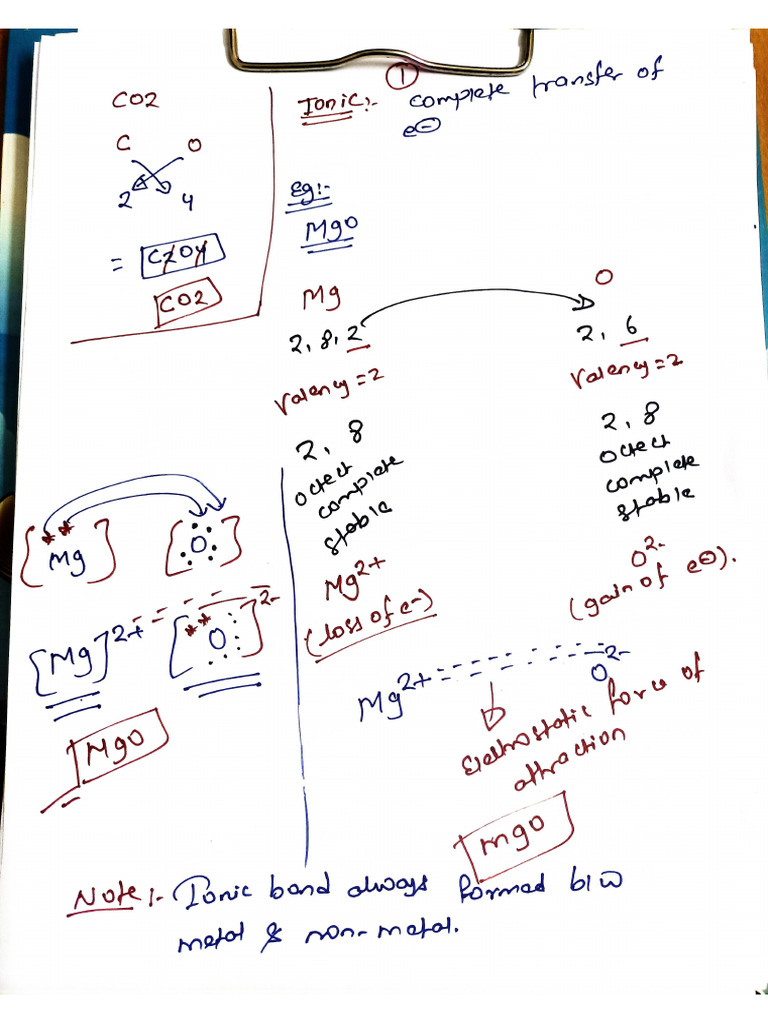 CO2
C O
2 4
= C2O4
CO2
①
Ionic:- complete transfer of
e⊖
Eg:-
MgO
Mg
2, 8, 2
Valency = 2
2, 8
octect
complete
stable
Mg2+
(loss of e-)
O
2, 6
Valency = 2
2, 8
octect
complete
stable
O2-
(gain of e⊖).
Mg2+ O2-
Electrostatic force of
attraction
mgO
[Mg] [O]
[Mg]2+ [O]2-
MgO
Note:- Ionic band always formed b/w
metal & non-metal.